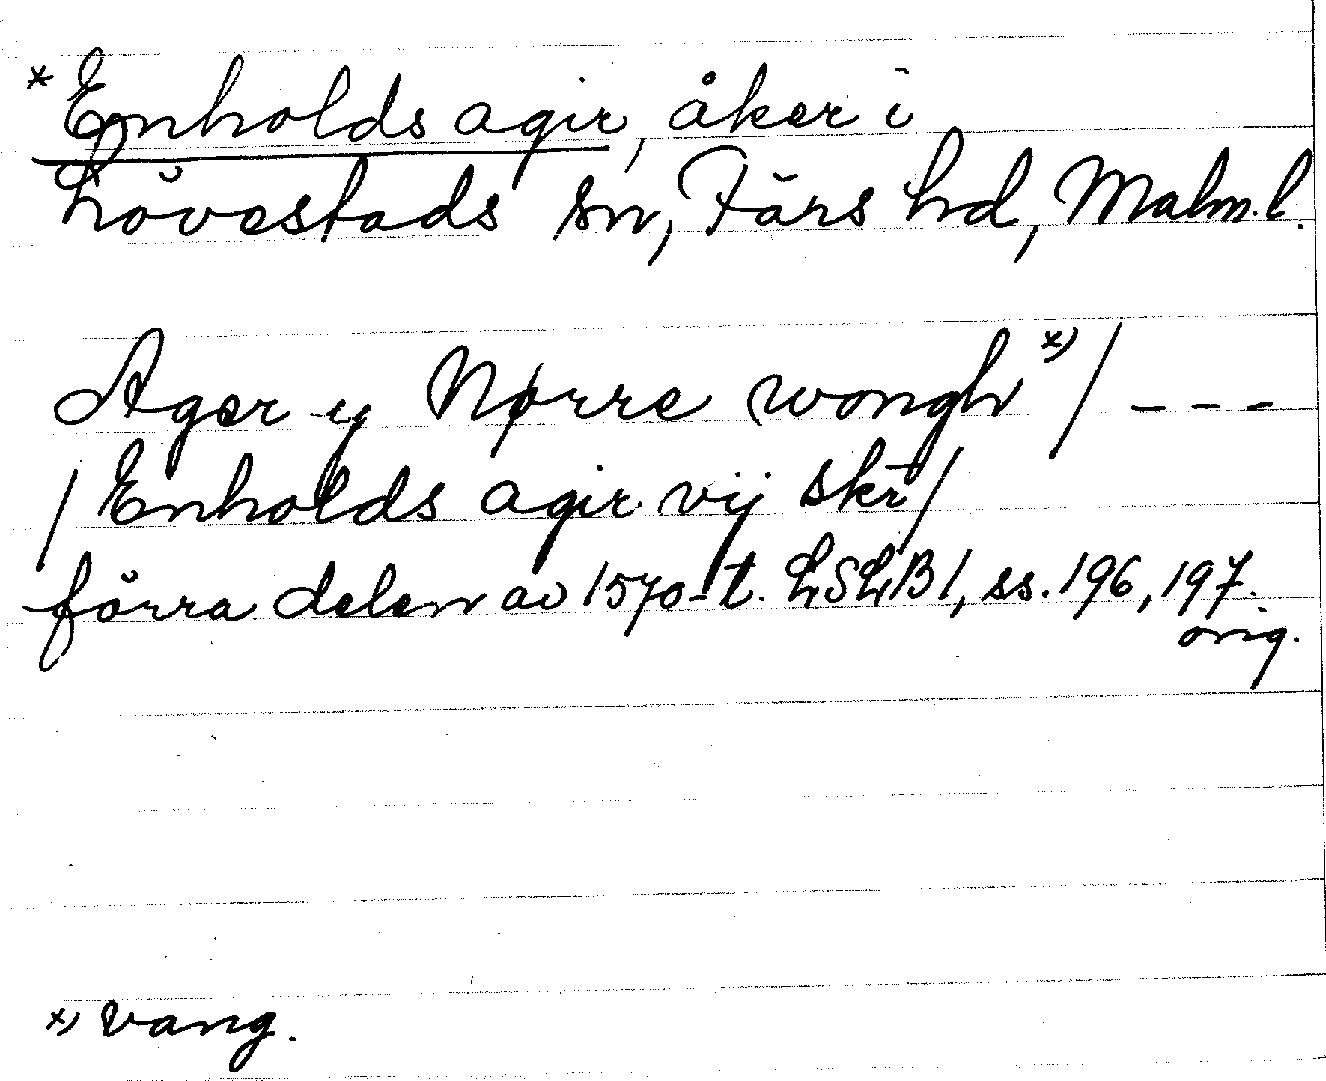 *Enholds agir, åker i
Lövestads sn, Färs hd, Malm.l.
Ager y Nørre wongh x) / - - -
/ Enholds agir vij skr̄ /
förra delen av 1570-t. LSLB I, ss. 196, 197.
orig.
x) vang.